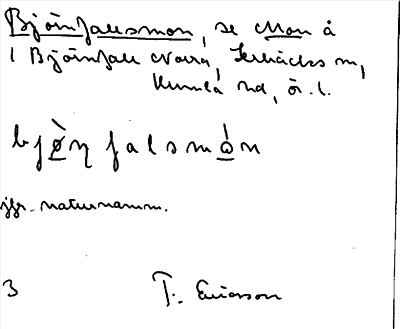 Björnfallsmon, se Mon å
l Björnfall Norra, Lerbäcks sn,
Kumla hd, ör. l.
bjø̀ṇ falsmὼn
jfr. naturnamn.
3 T. Ericsson